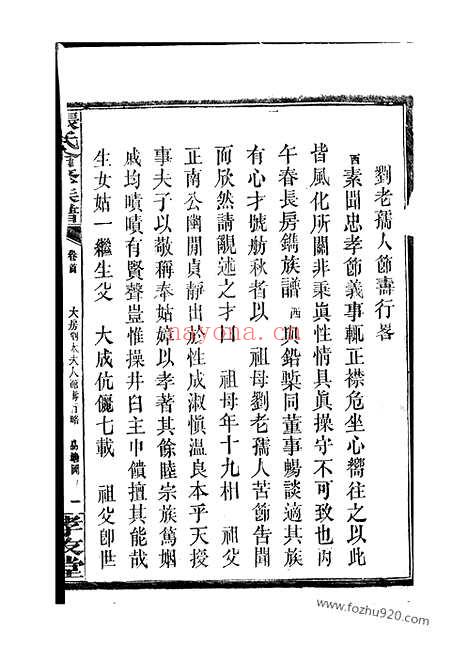 劉老孺人節壽行畧
酉素聞忠孝節義事輒正襟危坐心嚮往之以此
皆風化所關非秉眞性情具眞操守不可致也丙
午春長房鐫族譜酉與鉛槧同董事暢談適其族
有心才號舫秋者以 祖母劉老孺人苦節告聞
而欣然請覼述之才曰 祖母年十九相 祖父
正南公幽閒貞靜出於性成淑愼溫良本乎天授
事夫子以敬稱奉姑嫜以孝著其餘睦宗族篤姻
戚均嘖嘖有賢聲豈惟操井臼主中饋擅其能哉
生女姑一繼生父 大成伉儷七載 祖父卽世
張氏 修族譜
卷首
大房劉老夫人節壽行略
一
孝友堂
nayona.cn
www.fozhu920.com